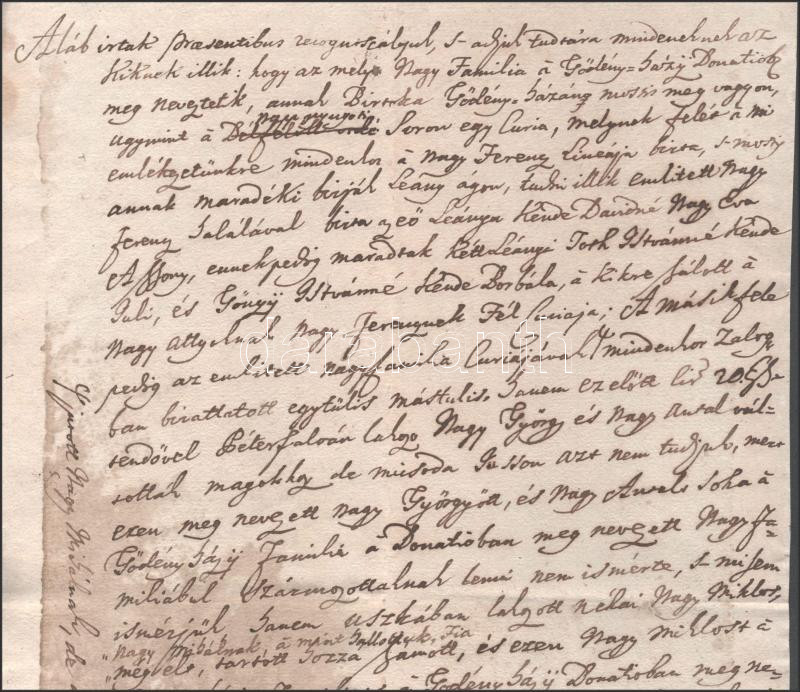 Aláb irtak præsentibus recognoscályuk, s-adjuk tudtára mindeneknek az
kiknek illik: hogy az mely Nagy Familia à Gődény-házi Donatióba
meg neveztetik, annak Birtoka Gődény-házáng mostis meg vagyon,
ugymint à Soron egy Curia, melynek felét à mi
emlékezetünkre mindenkor à Nagy Ferencz Lineája birta, s-mostis
annak maradéki birják Leány ágon, tudni illik emlitett Nagy
Ferencz halálával birta azeő Leánya Kende Davidné Nagy Eva
Aszszony, ennek pedig maradtak kett Leányi Toth Istvánné Kende
Juli, és Gönyij Istvánné Kende Borbála, à kikre szálott à
Nagy Attyoknak Nagy Ferencznek Fél Curiaja; A másik fele
pedig az emlitett Nagy familia Curiajának mindenkor Zalog-
ban birattatott egytülis mástulis. Hanem ez előtt 20. Esz-
tendővel Péterfalván lakozo Nagy György és Nagy Antal vál-
tották magokhoz de misoda Jusson azt nem tudjuk, mert
ezen meg nevezett Nagy Györgyött, és Nagy Antalt soha à
Gődényházij Familia à Donatióban meg nevezett Nagy Fa-
miliábúl Származottaknak lenni nem ismérte, s-mi sem
ismérjük hanem Uszkában lakozott néhai Nagy Miklos,
Nagy Mihálnak, à mint hallottyuk, Fia
tartott hozzá Jussott, és ezen Nagy Miklost à
Gődényházij Donatióban meg ne-
Nagy Mihálnak, de
darabanth